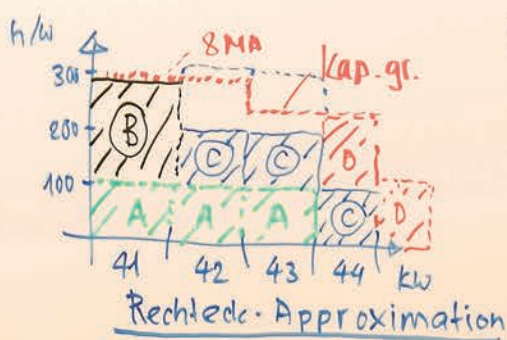 h/w
8 MA
Kap.gr.
300
200
100
B
C C
D
A A A
C D
41 42 43 44 KW
Rechteck-Approximation